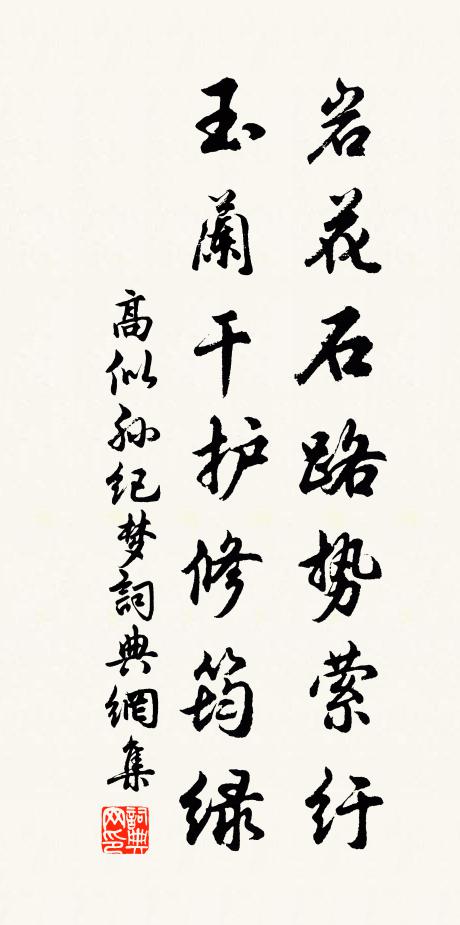 岩花石路势萦纡
玉蘭干护修筠绿
高似孙纪梦詞典網集
詞典网印